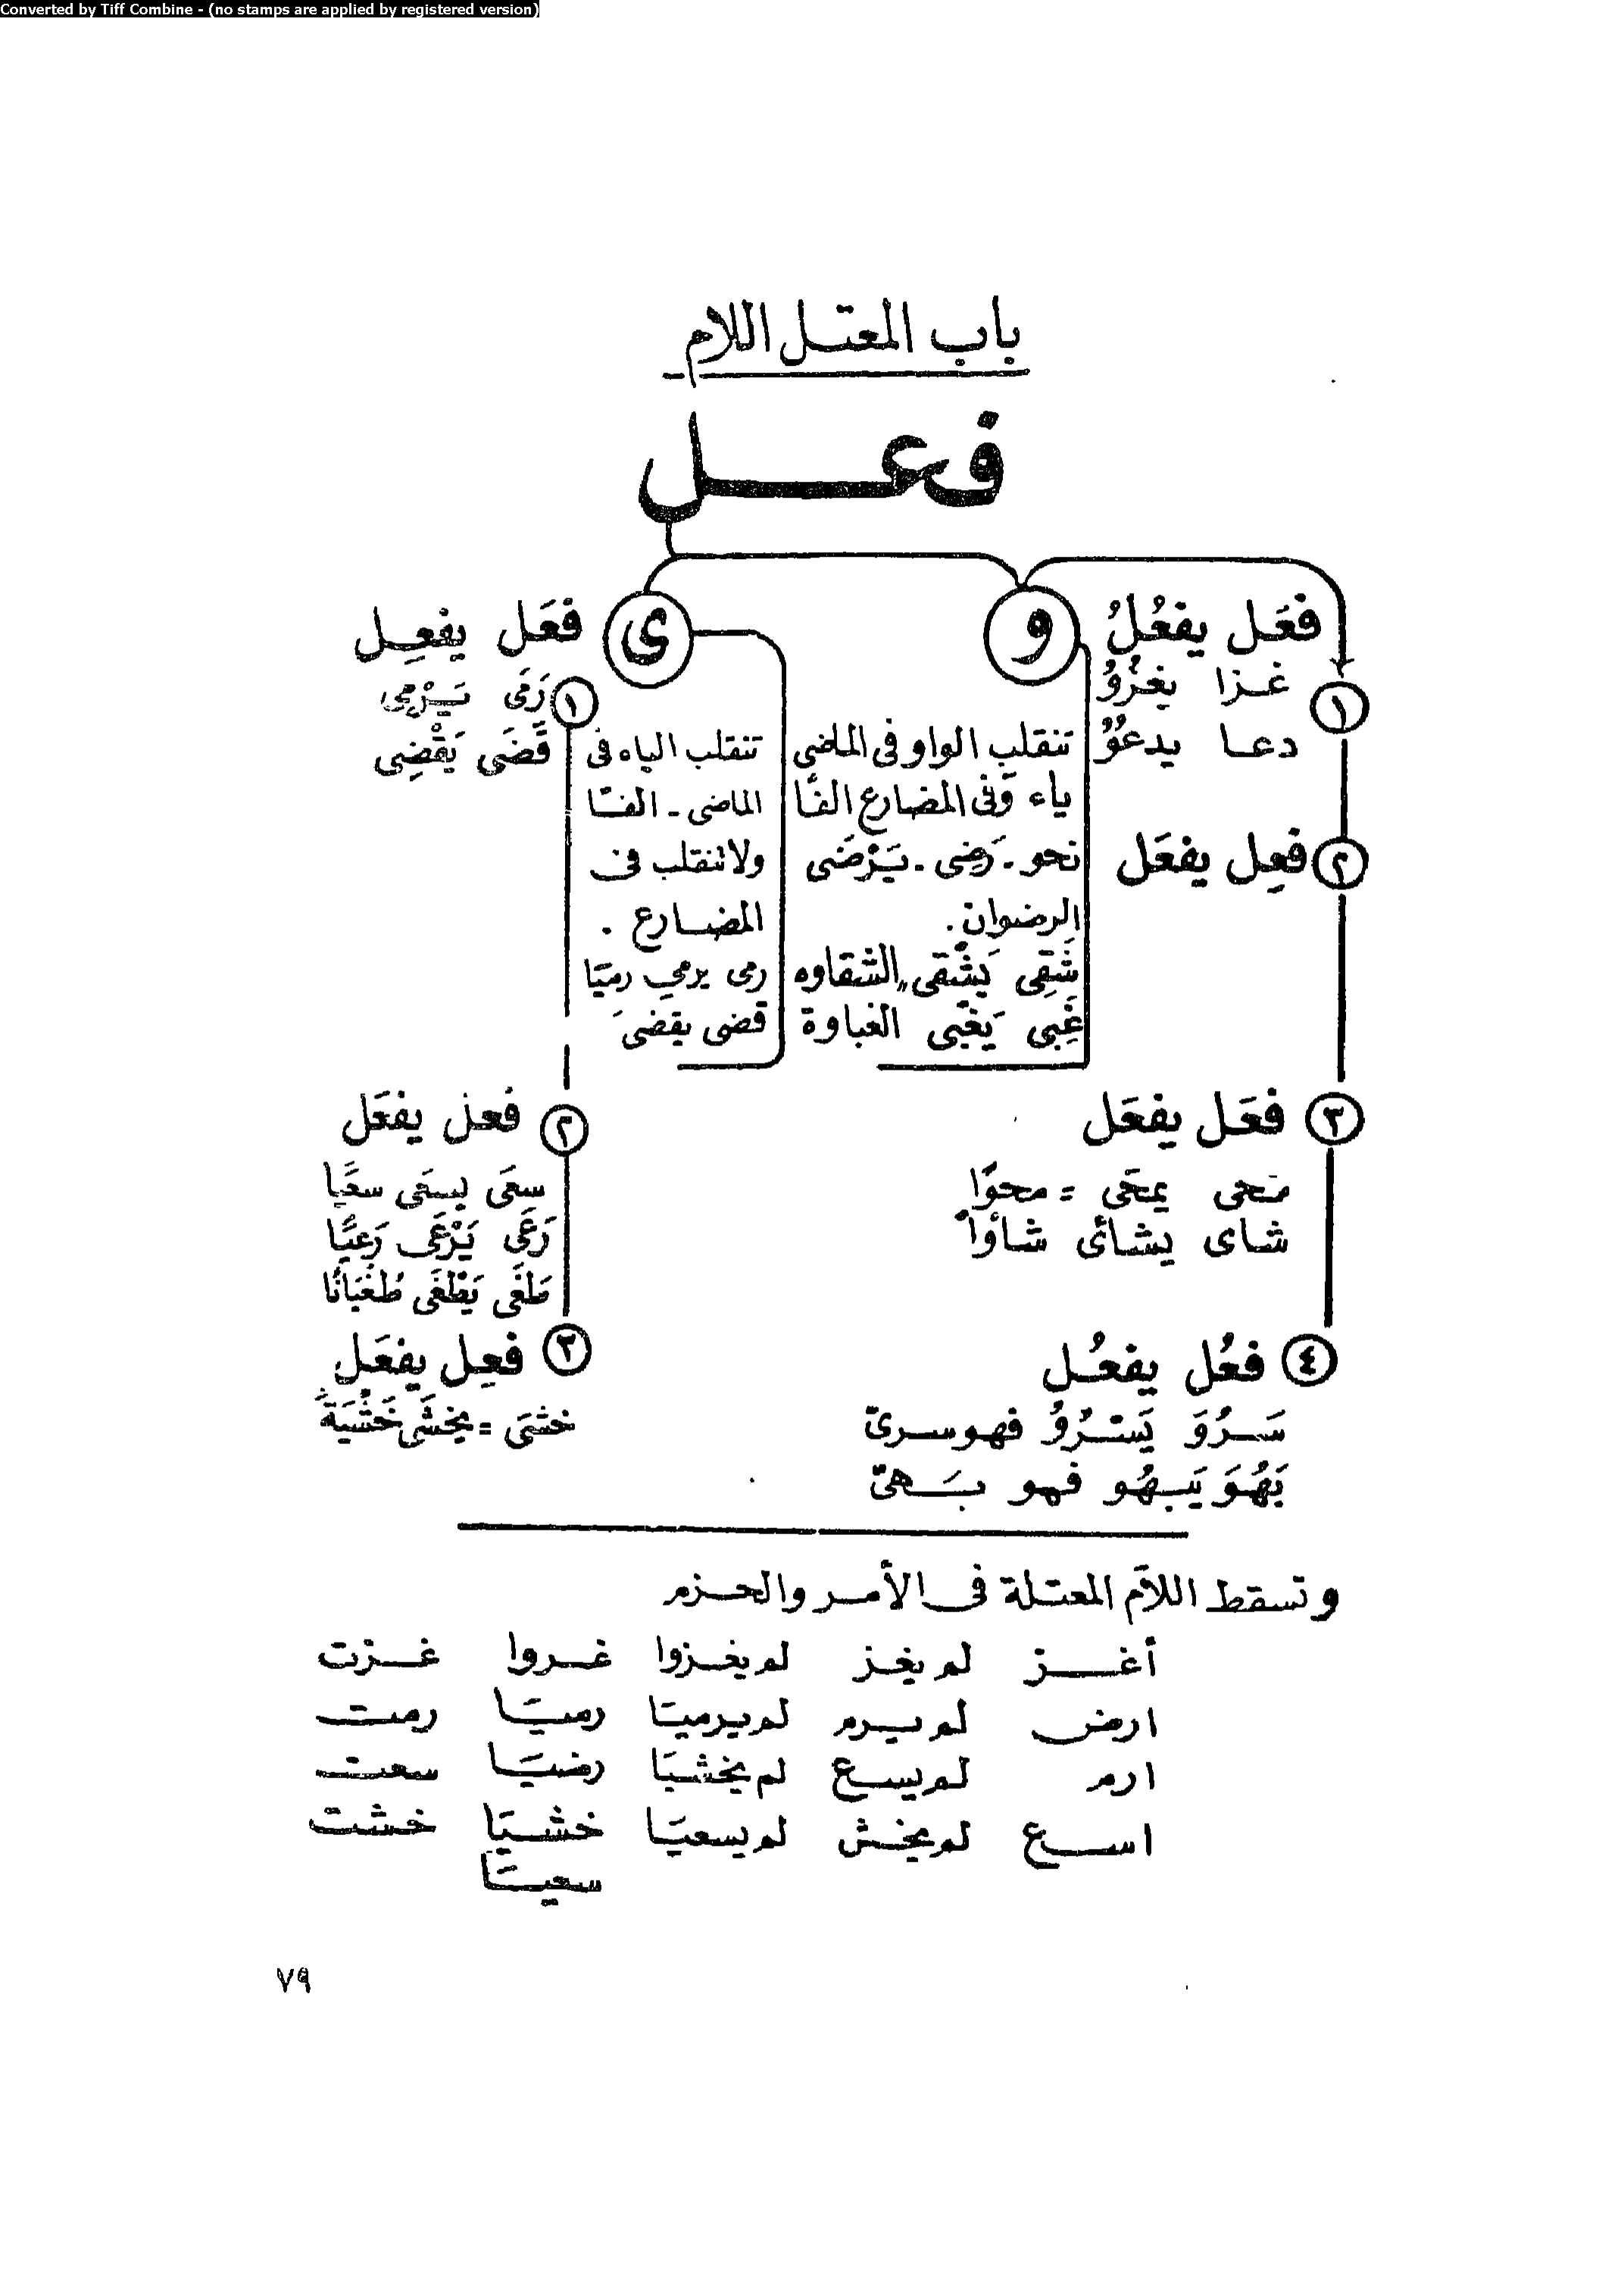 Converted by Tiff Combine - (no stamps are applied by registered version)
باب المعتل اللام
فعل
و
فعَل يفعُلُ
١
غزا يغزُوُ
دعا يدعوُ
تنقلب الواو فى الماضى
ياء وفى المضارع الفاً
نحو - رَضِى - يَرْضَى
الرضوان.
شَقِى يَشْقَى الشقاوه
غَبِى يَغْبَى الغباوة
٢ فعِل يفعَل
٣ فعَل يفعَل
محى يمحَى = محوًا
شاى يشائى شأوا
٤ فعُل يفعُل
سَرُوَ يَسْرُوُ فهو سرىّ
بَهُوَ يَبهُو فهو بَهىّ
ى
فعَل يفعِل
١
رَمَى يَرْمِى
قَضَى يَقْضِى
تنقلب الياء فى
الماضى - الفًا
ولا تنقلب فى
المضارع .
رمى يرمي رميًا
قضى يقضى
٢ فعل يفعَل
سعَى يسعَى سعيًا
رَعَى يَرْعَى رَعيًا
طَغَى يَطْغَى طُغْيَانًا
٣ فعِل يفعَل
خشىَ = يخشَى خَشْيَةً
وتسقط اللام المعتلة فى الأمر والحزم
أغز لم يغز لم يغزوا غروا غزت
ارض لم يرم لم يرميَا رميَا رمت
ارم لم يسع لم يخشيَا رضيَا سعت
اسع لم يخش لم يسعيَا خشيَا خشت
سعيَا
٧٩